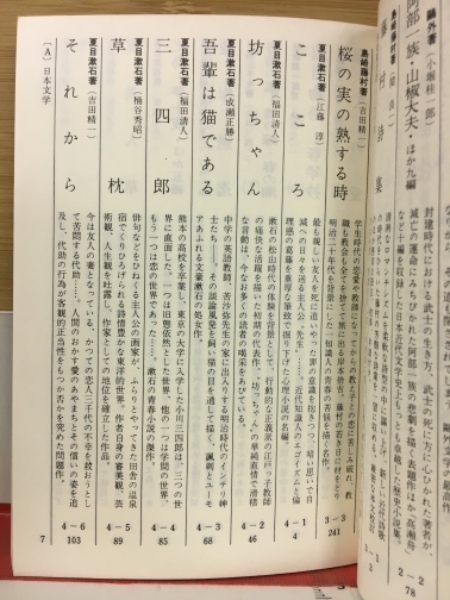 鷗外著(小堀桂一郎)
阿部一族・山椒大夫・ほか九編
封建時代における武士の生き方、武士の死に方に心ひかれた著者が、
滅亡の運命にみちびかれた阿部一族の悲劇を描く表題作ほか「高瀬舟」
など十一編を収録した日本近代文学史上もっとも卓越した歴史小説集。
2-2
78
藤村詩集
島崎藤村著(吉田精一)
桜の実の熟する時
学生時代の恋愛や教師になってからの教え子との恋に苦しみ破れ、教
職も教会も全てを捨てて旅に出る岸本捨吉。藤村の若き日に材をとり
明治二十年代を背景にした一知識人の青春の苦悩を描く名作。
3-3
241
夏目漱石著(江藤淳)
こころ
最も親しい友人を死に追いやった罪の意識を抱きつつ、暗い思いで自
滅への日々を送る主人公〝先生〟……。近代知識人のエゴイズムと倫
理感の葛藤を重厚な筆致で掘り下げた心理小説の名編。
4-1
4
夏目漱石著(福田清人)
坊っちゃん
漱石の松山時代の体験を背景として、行動的な正義派の江戸っ子教師
の痛快な活躍を描いた初期の代表作。〝坊っちゃん〟の単純直情で滑稽
な言動は、今なお多くの読者の喝采をあびている。
4-2
46
夏目漱石著(成瀬正勝)
吾輩は猫である
中学の英語教師、苦沙弥先生の家に出入りする明治時代のインテリ紳
士たち――。その談論風発を飼い猫の目を通して描く、諷刺とユーモ
アあふれる文豪漱石の処女作。
4-3
68
夏目漱石著(福田清人)
三四郎
熊本の高校を卒業し、東京の大学に入学した小川三四郎は、三つの世
界に直面した。一つは旧態依然とした世界、他の一つは学問の世界、
もう一つは恋の世界であった……。漱石の青春小説の傑作。
4-4
85
夏目漱石著(桶谷秀昭)
草枕
俳句などをひねくる主人公の画家が、ふらりとやってきた田舎の温泉
宿でくりひろげられる詩情豊かな東洋的世界。作者自身の審美観、芸
術観、人生観を吐露し、作家としての地位を確立した作品。
4-5
89
夏目漱石著(吉田精一)
それから
今は友人の妻となっている、かつての恋人三千代の不幸を救おうとし
て苦悶する代助……。人間のおかす愛のあやまちとその償いの姿を追
及し、代助の行為が客観的正当性をもつか否かを究めた問題作。
4-6
103
〔A〕日本文学
7